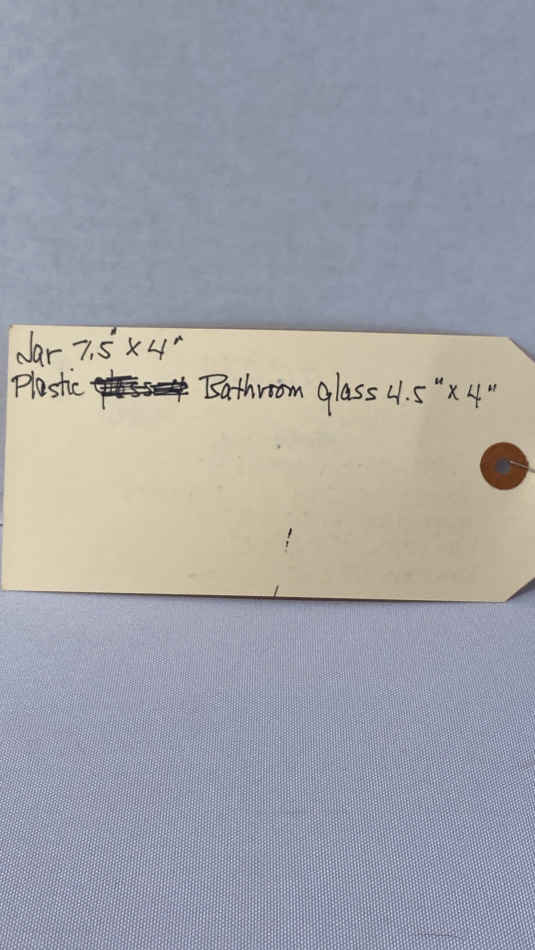 Jar 7.5" x 4"
Plastic Bathroom glass 4.5" x 4"